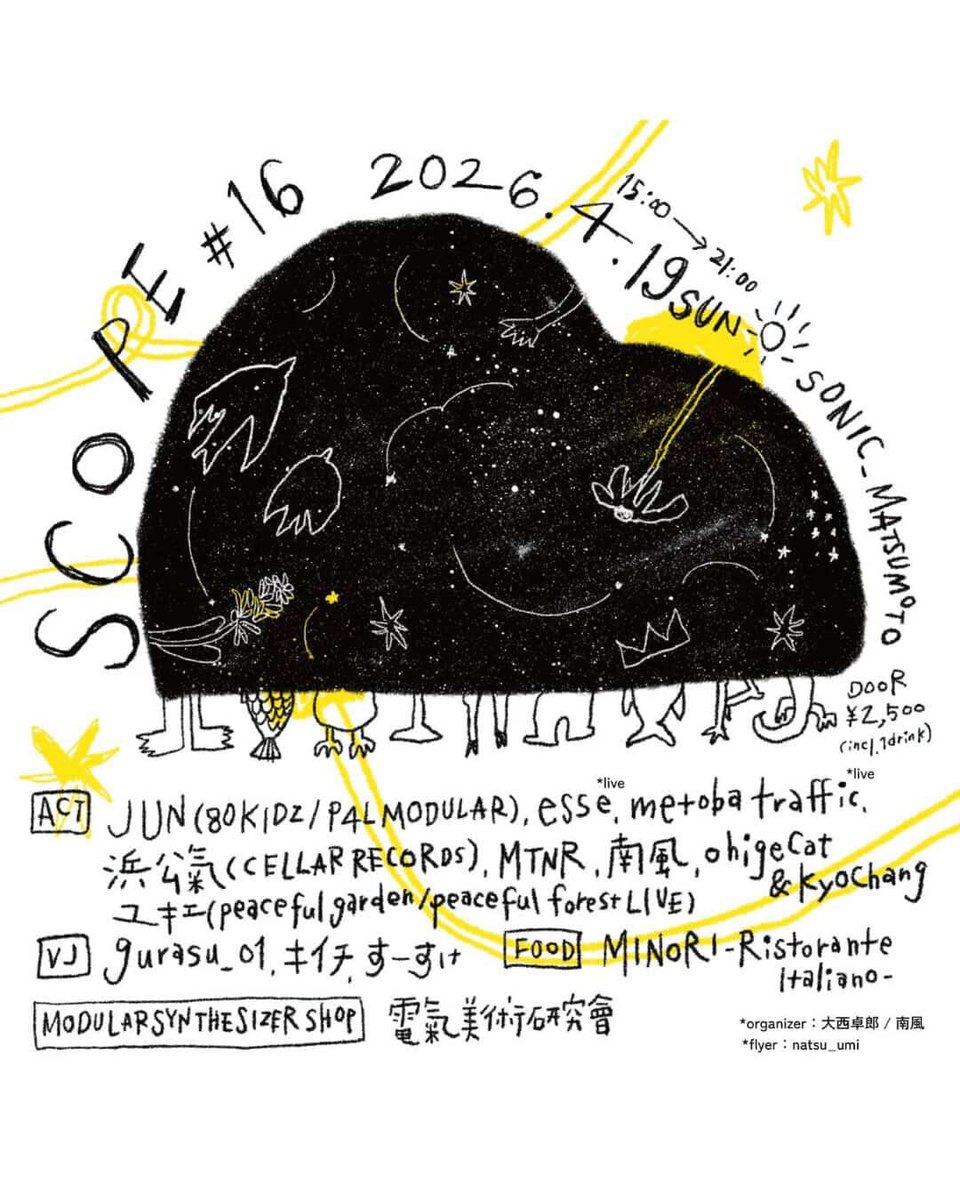 SCOPE #16 2026.4.19 SUN
15:00→21:00
SONIC_MATSUMOTO
DOOR
¥2,500
(incl.1drink)
*live
*live
ACT JUN(80KIDZ/P4L MODULAR), esse, metoba traffic,
浜公氣(CELLAR RECORDS), MTNR, 南風, ohigeCat
&KyoChang
ユキエ(peaceful garden/peaceful forest LIVE)
VJ gurasu_01, キイチ, すーすけ
FOOD MINORI-Ristorante
Italiano-
MODULARSYNTHESIZER SHOP 電氣美術研究會
*organizer：大西卓郎 / 南風
*flyer：natsu_umi